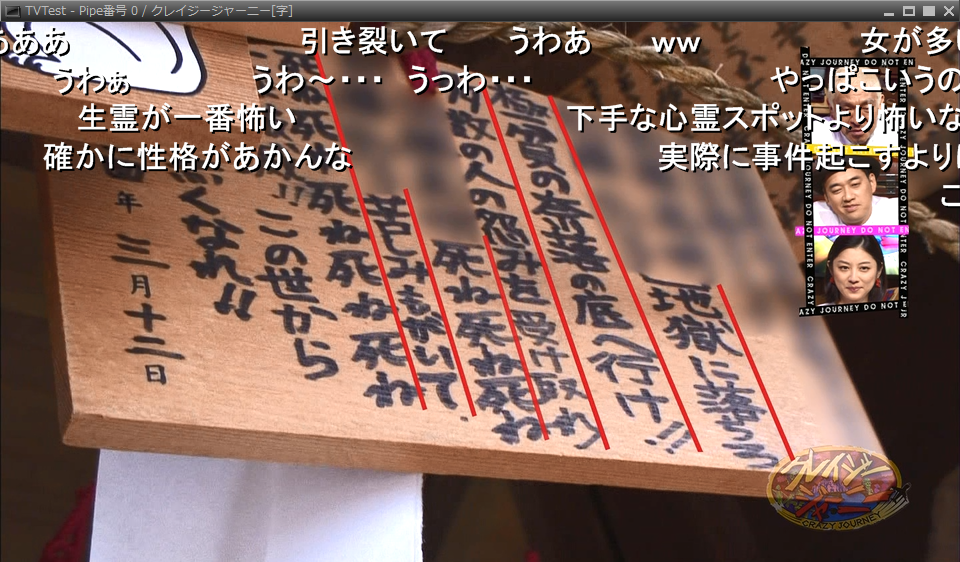 TVTest - Pipe番号 0 / クレイジージャーニー[字]
うああ
引き裂いて
うわあ
ww
女が多い
うわぁ
うわ～・・・
うっわ・・・
やっぱこいうの
生霊が一番怖い
下手な心霊スポットより怖いな
確かに性格があかんな
実際に事件起こすより
地獄に落ちろ
極貧の奈落の底へ行け!!
数の人の怨みを受け取れ
死ね死ね死ね
苦しみもがいて
死ね死ね死ね死ね
この世から
なくなれ!!
年三月十二日
CRAZY JOURNEY DO NOT ENTER
クレイジージャーニー
CRAZY JOURNEY